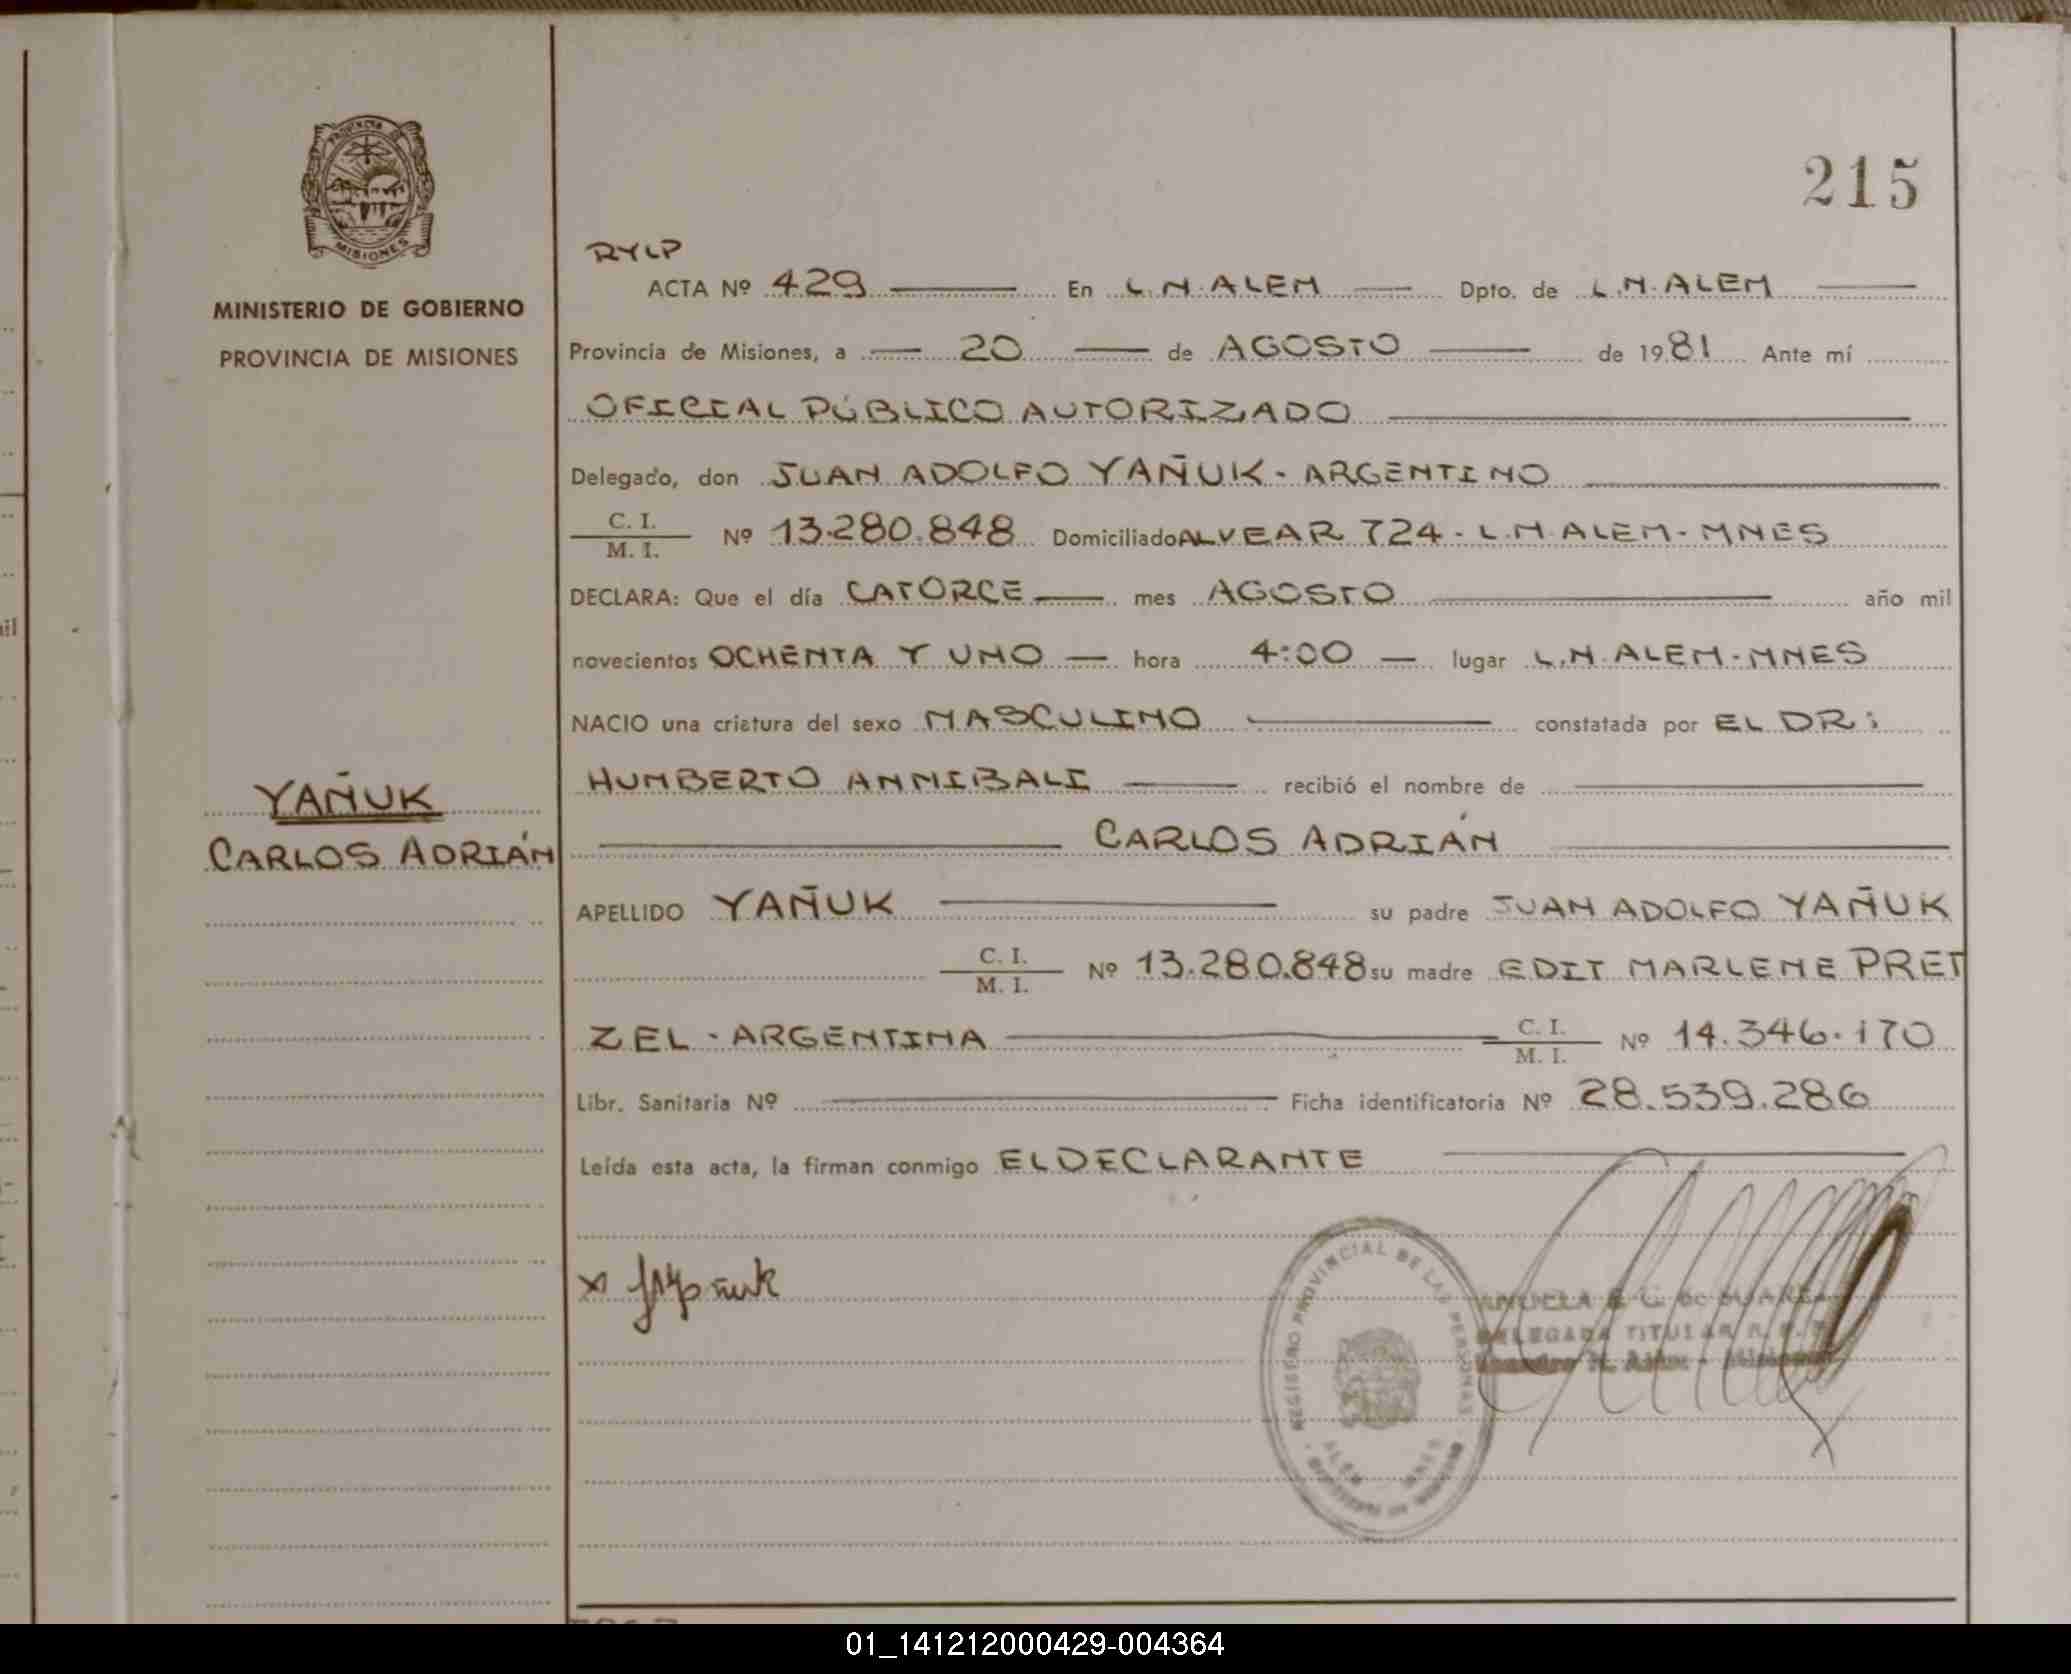 PROVINCIA DE
MISIONES
MINISTERIO DE GOBIERNO
PROVINCIA DE MISIONES
YAÑUK
CARLOS ADRIÁN
215
RYLP
ACTA Nº 429 En L.N. ALEM Dpto. de L.N. ALEM
Provincia de Misiones, a 20 de AGOSTO de 1981 Ante mí
OFICIAL PÚBLICO AUTORIZADO
Delegado, don JUAN ADOLFO YAÑUK - ARGENTINO
C. I.
M. I. Nº 13.280.848 Domiciliado ALVEAR 724 - L.N. ALEM - MNES
DECLARA: Que el día CATORCE mes AGOSTO año mil
novecientos OCHENTA Y UNO hora 4:00 lugar L.N. ALEM - MNES
NACIO una criatura del sexo MASCULINO constatada por EL DR:
HUMBERTO ANNIBALI recibió el nombre de
CARLOS ADRIÁN
APELLIDO YAÑUK su padre JUAN ADOLFO YAÑUK
C. I.
M. I. Nº 13.280.848 su madre EDIT MARLENE PRET
ZEL - ARGENTINA C. I.
M. I. Nº 14.346.170
Libr. Sanitaria Nº Ficha identificatoria Nº 28.539.286
Leída esta acta, la firman conmigo EL DECLARANTE
REGISTRO PROVINCIAL DE LAS PERSONAS
ALEM MNES
DELEGADA TITULAR R. P. P.
Leandro N. Alem - Misiones
01_141212000429-004364